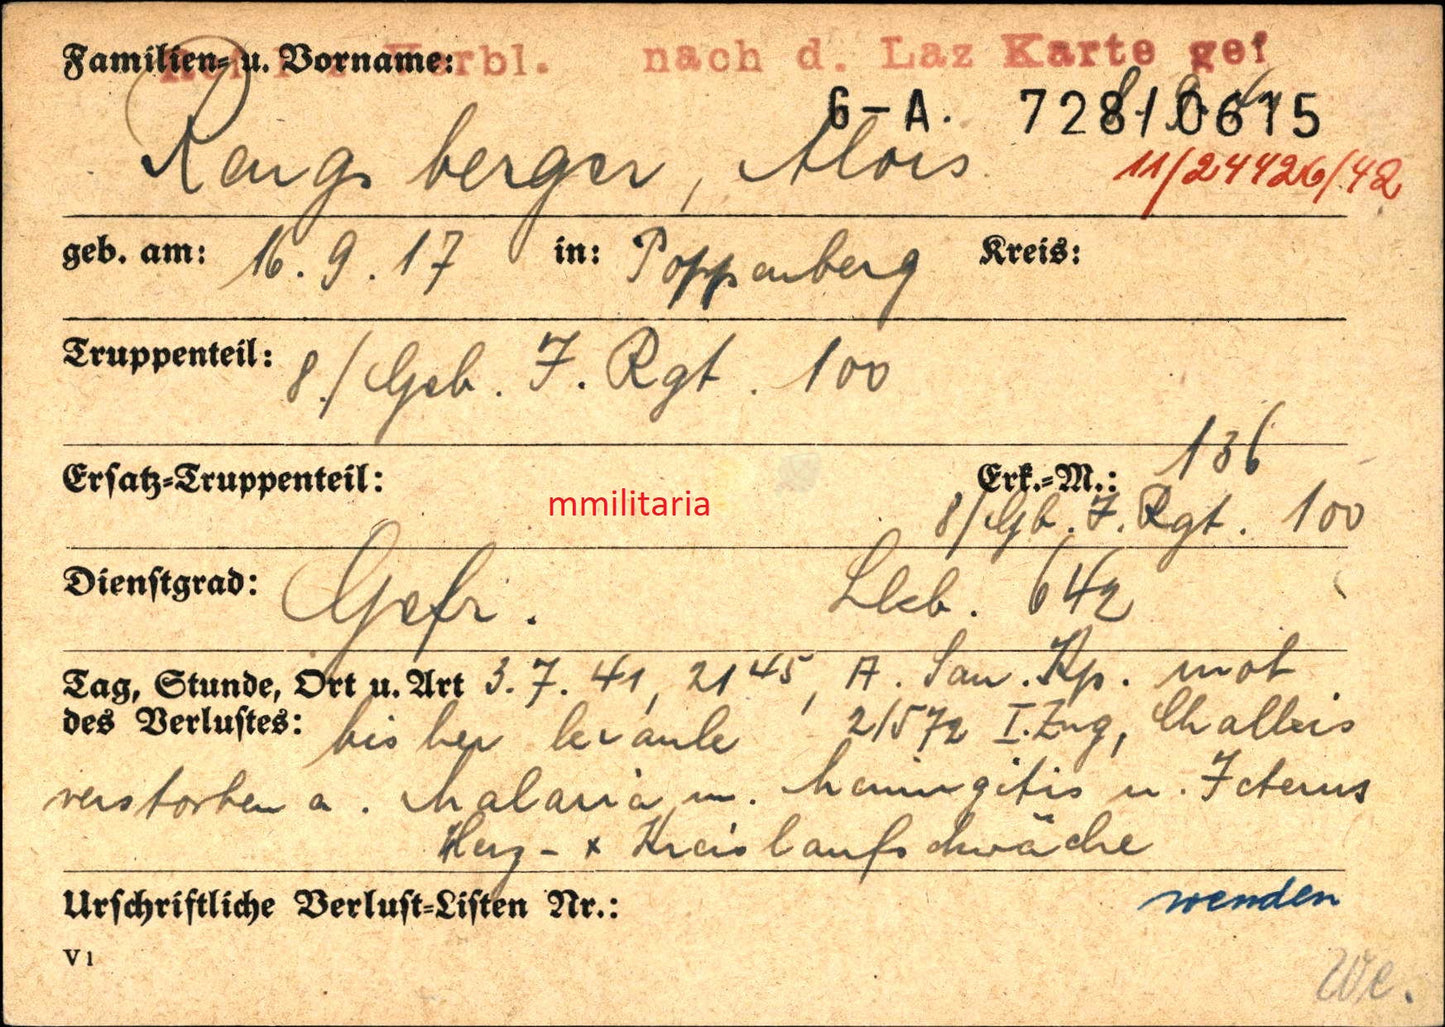 Verbl. nach d. Laz Karte gef
Familien- u. Vorname:
G-A. 728/0615
Rangsberger, Alois
11/24426/42
geb. am: 16.9.17 in: Poppenberg Kreis:
Truppenteil: 8./Geb. J. Rgt. 100
Ersatz-Truppenteil: Erk.-M.: 136
mmilitaria
8/Gb. J. Rgt. 100
Dienstgrad: Gefr. 642
Tag, Stunde, Ort u. Art 3.7.41, 21 45, San. Kp. mot
des Verlustes: bisher 2/572 I. Zug,
verstorben a. Malaria m. Meningitis u. Icterus
Herz- + Kreislaufschwäche
Urschriftliche Verlust-Listen Nr.: wenden
V 1
We.